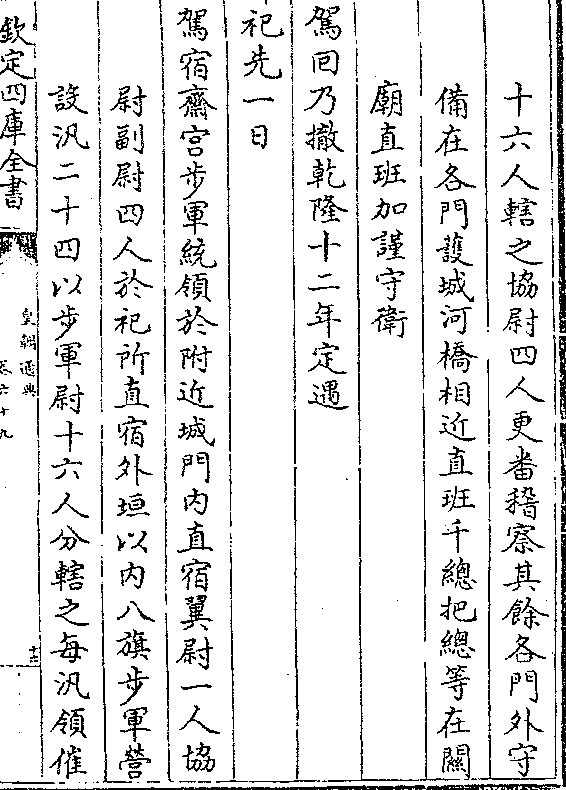 十六人轄之協尉四人更畨稽察其餘各門外守
備在各門護城河橋相近直班千總把總等在闗
廟直班加謹守衛
駕囘乃撤乾隆十二年定遇
祀先一日
駕宿齋宫步軍統領於附近城門内直宿翼尉一人協
尉副尉四人於祀所直宿外垣以内八旗步軍營
設汛二十四以步軍尉十六人分轄之每汛領催
欽定四庫全書
皇朝通典
卷六十九